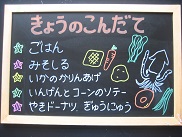 きょうのこんだて
ごはん
みそしる
いかのかりんあげ
いんげんとコーンのソテー
やきドーナツ、ぎゅうにゅう